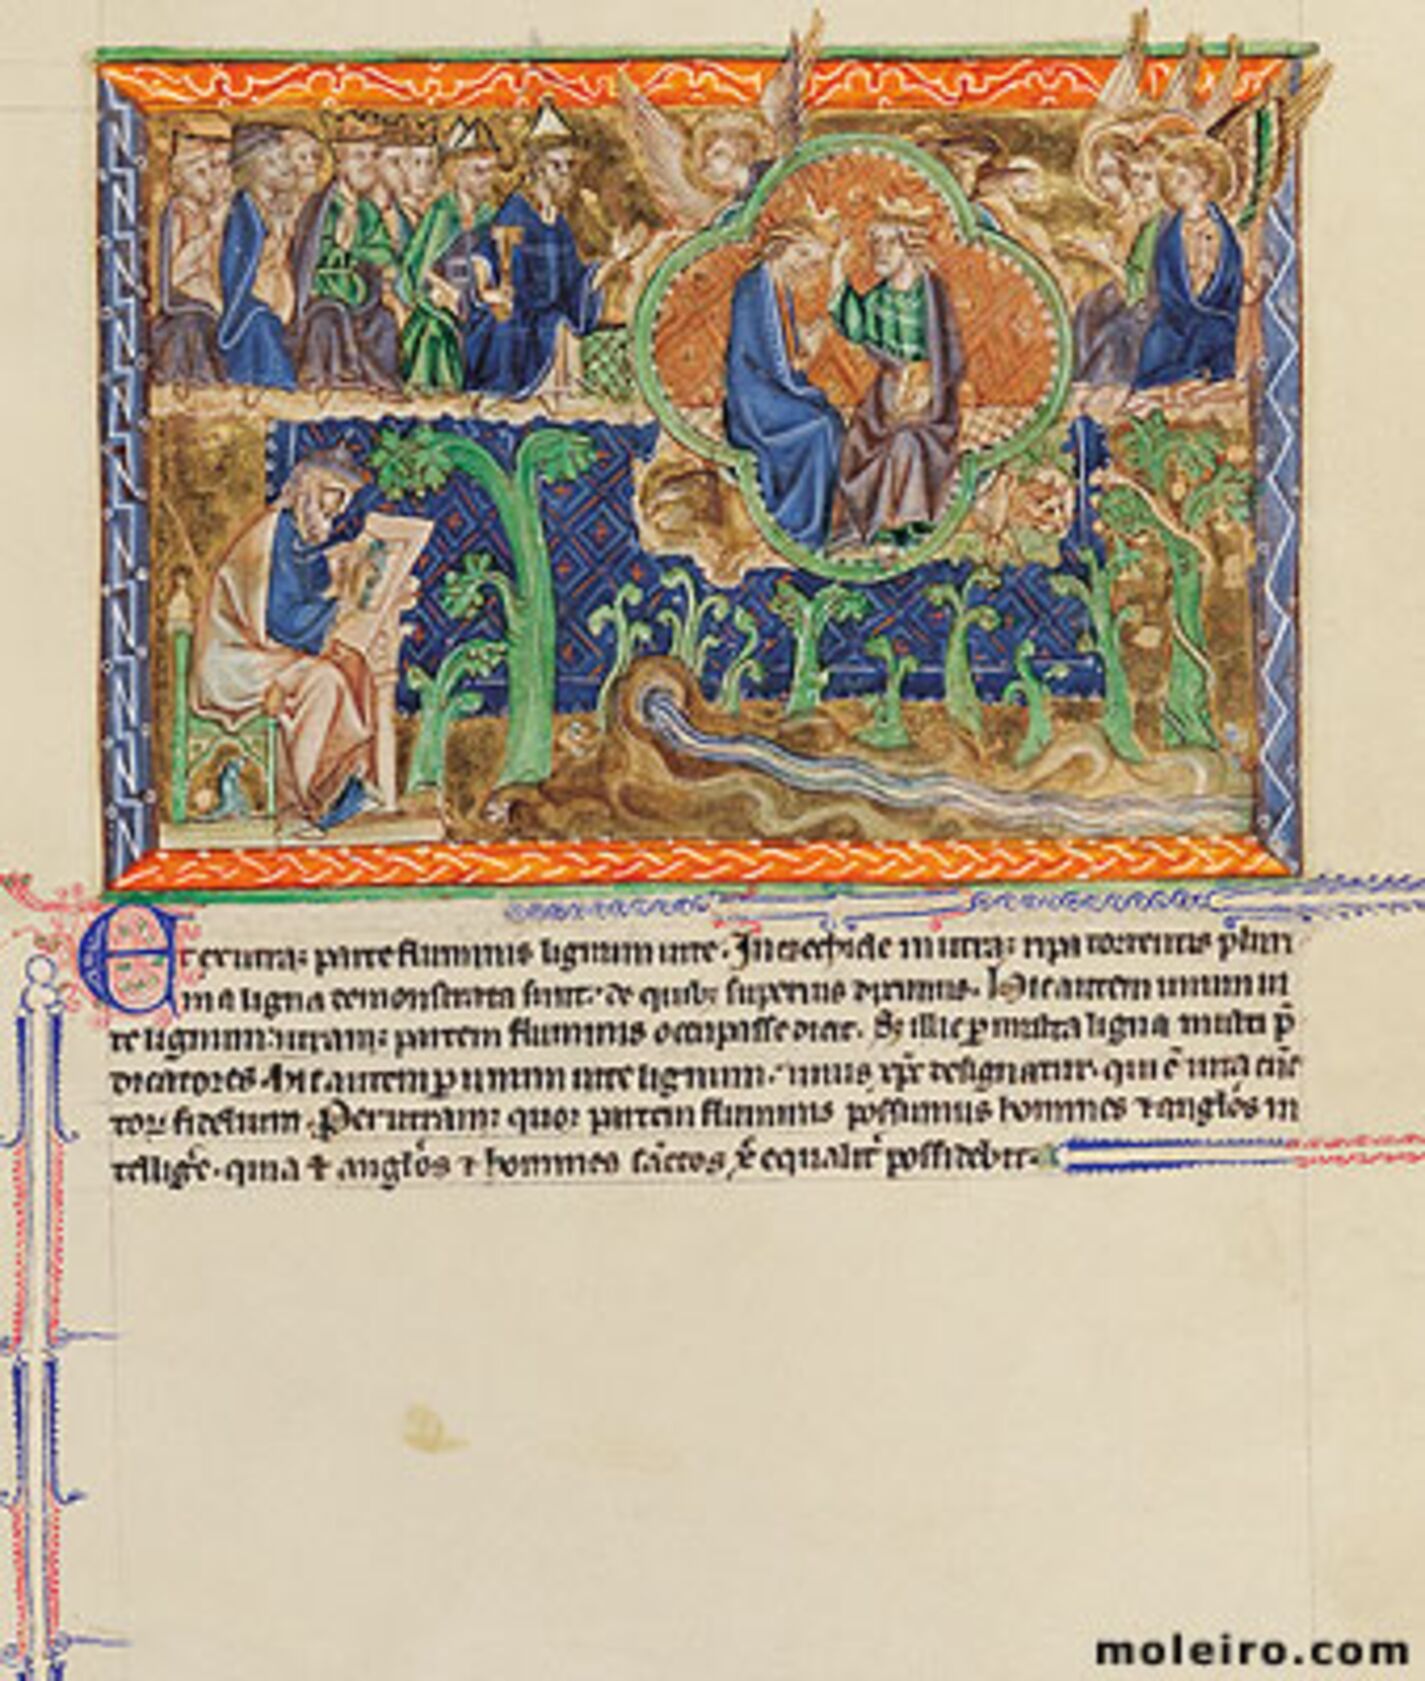 Et ex utraq; parte fluminis lignum vite. In ezechiele in utraq; ripa torrentis pluri
ma ligna demonstrata sunt: de quib; superius diximus. Hic autem unum vi
te lignum utramq; partem fluminis occupasse dicit. Et illic p multa ligna multi p
dicatores. hic autem p unum vite lignum unus xpc designatur. qui e vita
fidelium. Per utramq; quoq; partem fluminis possumus homines 7 anglos in
tellige. quia 7 anglos 7 homines scos equalit possidebit
moleiro.com